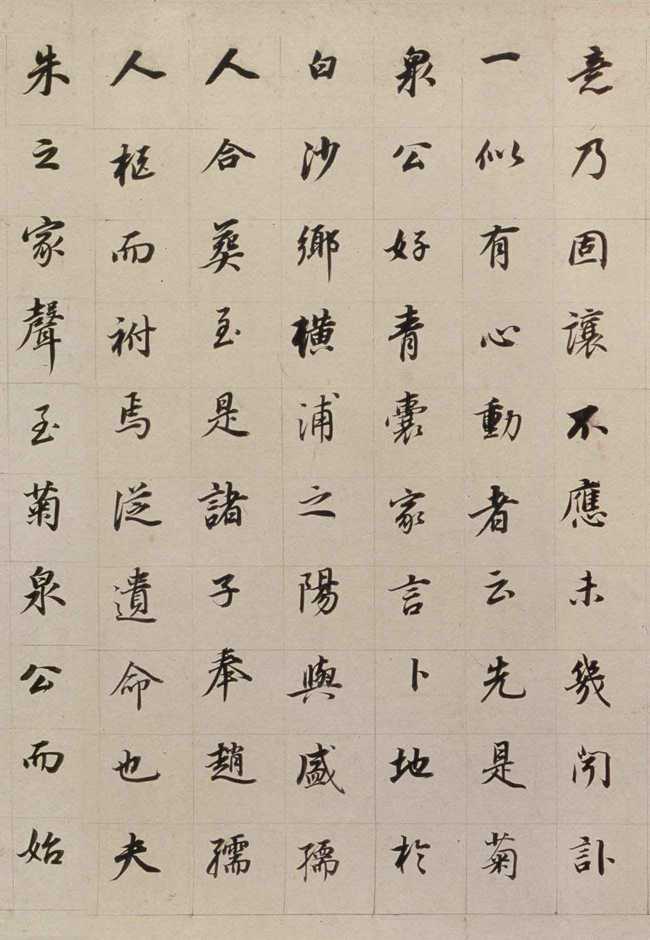 意乃固讓不應未幾聞訃
一似有心動者云先是菊
泉公好青囊家言卜地於
白沙鄉橫浦之陽與盛孺
人合葬至是諸子奉趙孺
人柩而祔焉從遺命也夫
朱之家聲至菊泉公而始